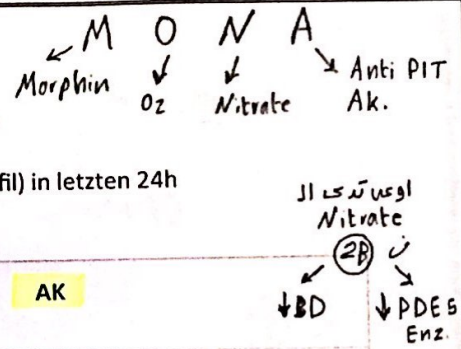 M O N A
Morphin O2 Nitrate Anti PIT
Ak.
fil) in letzten 24h
اوعى تدى ال
Nitrate
2B ف
AK
↓BD ↓PDE5
Enz.